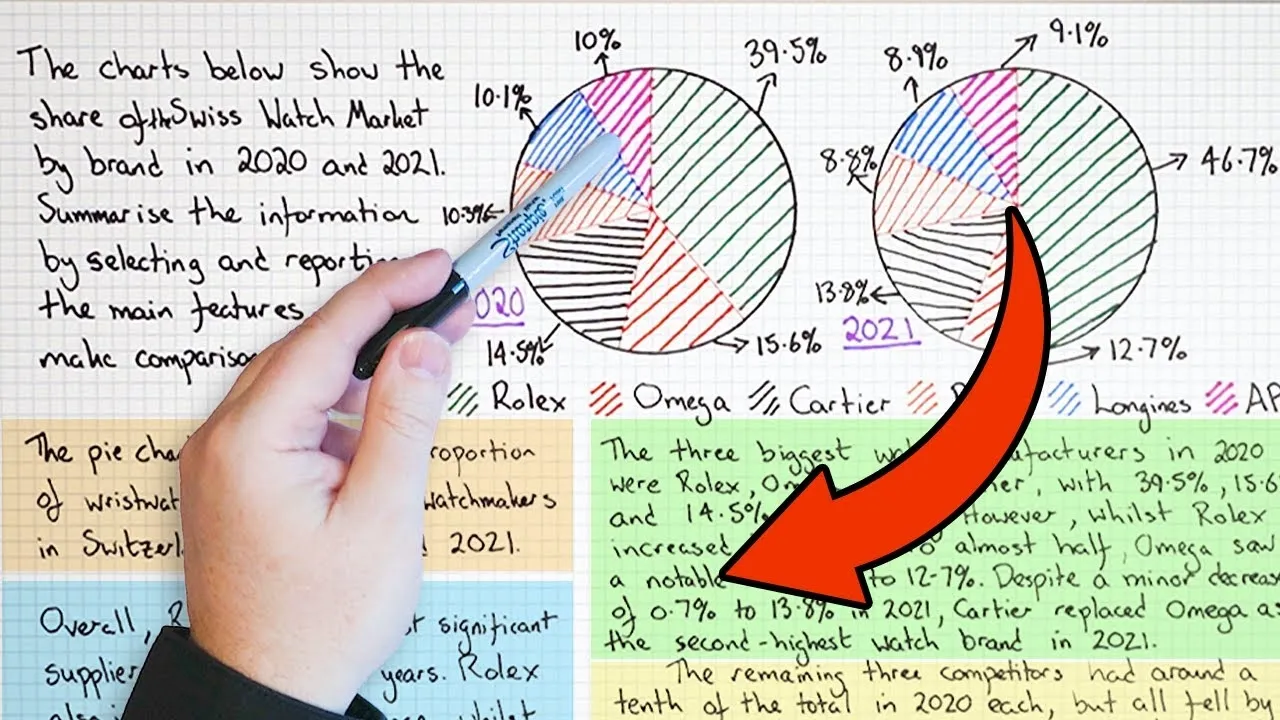 The charts below show the
share of the Swiss Watch Market
by brand in 2020 and 2021.
Summarise the information
by selecting and
the main features
make
10%
39.5%
10.1%
10.3%
14.5%
15.6%
2020
9.1%
8.9%
8.8%
46.7%
13.8%
12.7%
2021
Rolex Omega Cartier Longines AP
Sharpie
The pie
of
in 2021.
watchmakers
Overall, significant
years. Rolex
whilst
The three biggest in 2020
were Rolex, with 39.5%, 15.6
and 14.5% However, whilst Rolex
increased almost half, Omega saw
a notable to 12.7%. Despite a minor decrease
of 0.7% to 13.8% in 2021, Cartier replaced Omega as
the second-highest watch brand in 2021.
The remaining three competitors had around a
tenth of the total in 2020 each, but all fell by